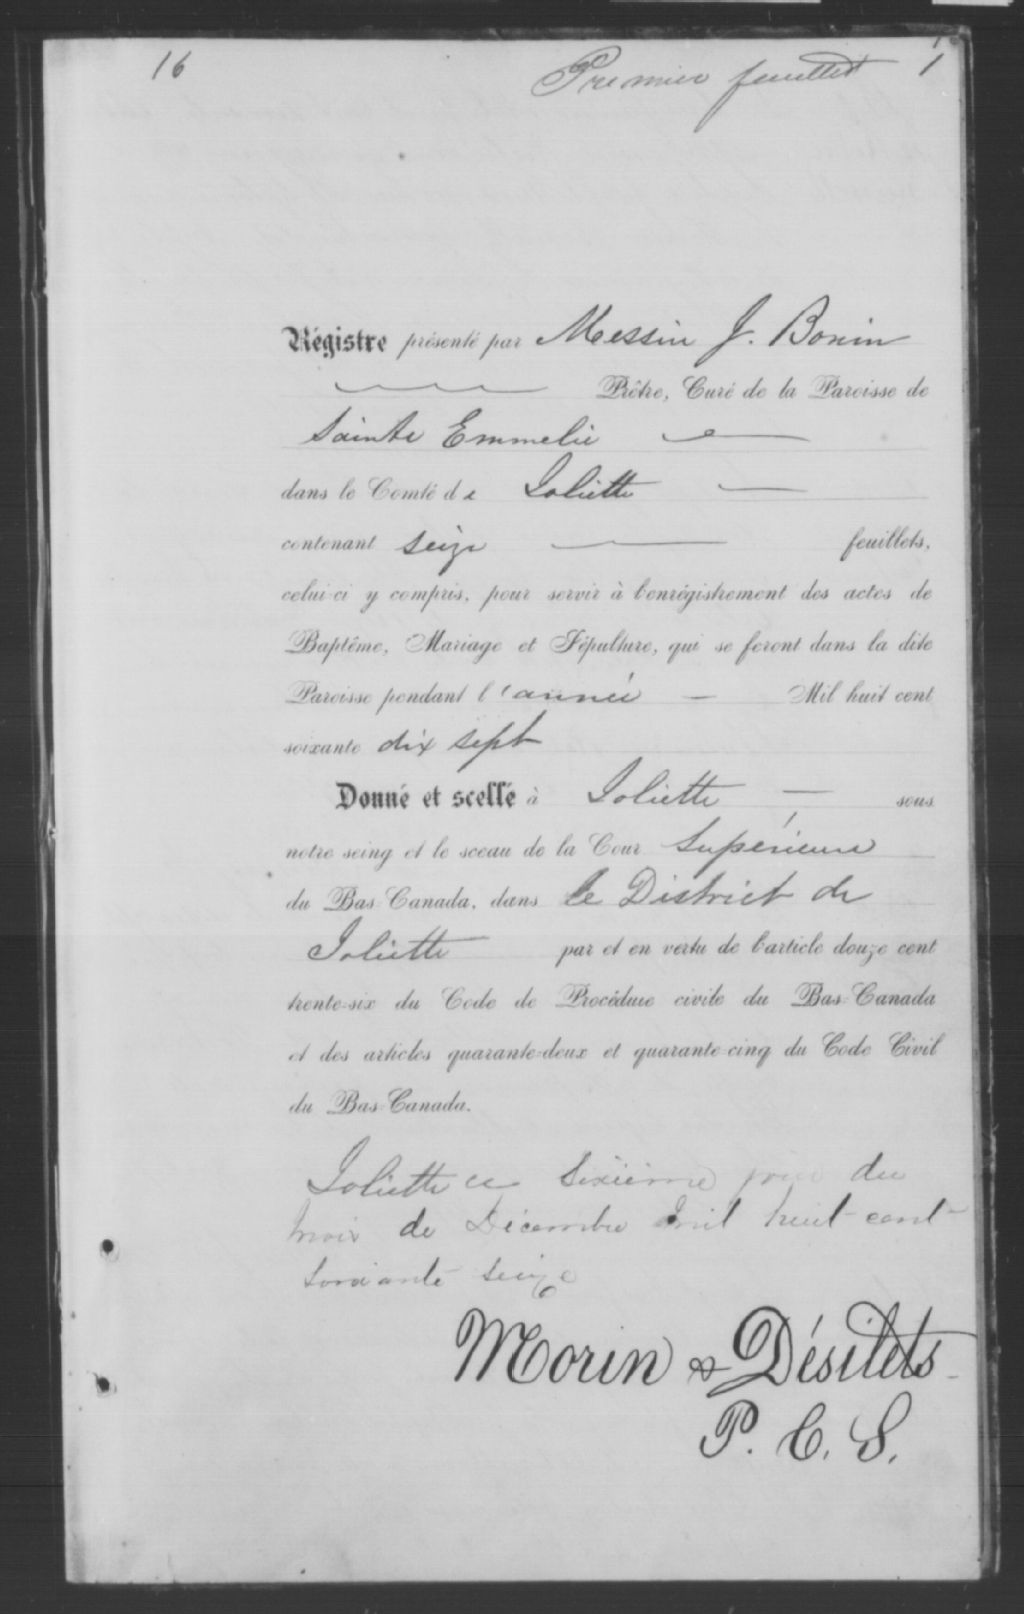 16
Premier feuillet 1
Régistre présenté par Messire J. Bonin
Prêtre, Curé de la Paroisse de
Sainte Emmelie
dans le Comté de Joliette
contenant seize feuillets,
celui-ci y compris, pour servir à l'enrégistrement des actes de
Baptême, Mariage et Sépulture, qui se feront dans la dite
Paroisse pendant l'année Mil huit cent
soixante dix sept
Donné et scellé à Joliette sous
notre seing et le sceau de la Cour Supérieure
du Bas-Canada, dans le District de
Joliette par et en vertu de l'article douze cent
trente-six du Code de Procédure civile du Bas-Canada
et des articles quarante-deux et quarante-cinq du Code Civil
du Bas-Canada.
Joliette ce sixième jour du
mois de Décembre mil huit-cent-
soixante seize
Morin & Désilets
P. C. S.